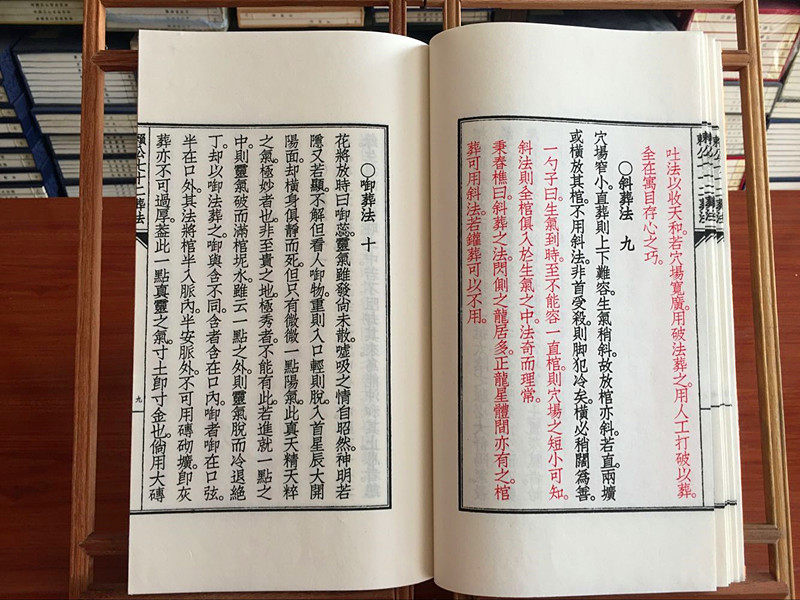 吐法以收天和。若穴場寬廣。用破法葬之。用人工打破以葬。
全在寓目存心之巧。
○斜葬法 九
穴場窄小。直葬則上下難容。生氣稍斜。故放棺亦斜。若直。兩壙
或橫放其棺。不用斜法。非首受殺。則脚犯冷矣。橫必稍闊爲善。
一勺子曰。生氣到時。至不能容一直棺。則穴場之短小可知。
斜法則全棺俱入於生氣之中。法奇而理常。
秉春樵曰。斜葬之法。閃側之龍居多。正龍星體間亦有之。棺
葬可用斜法。若鑵葬可以不用。
○啣葬法 十
花將放時曰啣蕊。靈氣雖發尙未散。噓吸之情自昭然。神明若
隱又若顯。不解但看人啣物。重則入口輕則脫。入首星辰大開
陽面。却橫身俱靜而死。但只有微微一點陽氣。此真天精天粹
之氣。極妙者也。非至貴之地。極秀者。不能有此。若進就一點之
中。則靈氣破而滿棺坭水。雖云一點之外。則靈氣脫而冷退絕
丁。却以啣法葬之。啣與含不同。含者含在口內。啣者啣在口弦。
半在口外。其法將棺半入脈內。半安脈外。不可用磚砌壙。卽灰
葬亦不可過厚。葢此一點真靈之氣。寸土卽寸金也。倘用大磚
賴公文十二葬法
九